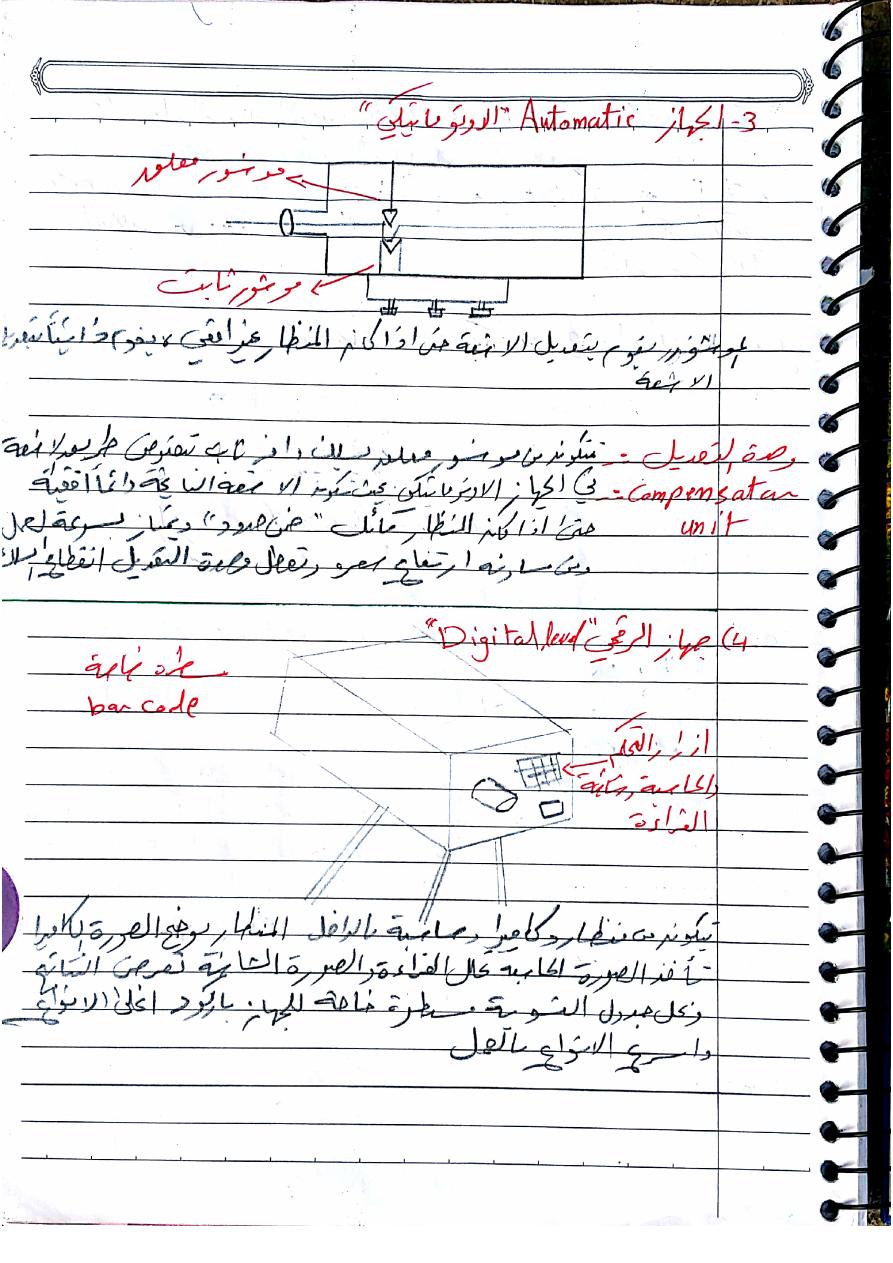 3- الجهاز Automatic "الاوتوماتيكي"
موشور معلق
موشور ثابت
الموشور يقوم بتعديل الاشعة حتى اذا كان المنظار غير افقي يقوم
الاشعة
وحدة التعديل :- تتكون من موشور معلق بسلك واخر ثابت تعترض طريق الاشعة
Compensatan :- في الجهاز الاوتوماتيكي بحيث تكون الاشعة الناتجة دائماً افقية
unit حتى اذا كان المنظار مائل "ضمن حدود" ويمتاز بسرعة العمل
ومن مساوئه ارتفاع سعره وتعطل وحدة التعديل انقطاع السلك
4) جهاز الرقمي "Digital level"
مسطرة خاصة
bar code
ازرار التحكم
والحاسبة وشاشة
القراءة
تتكون من منظار وكاميرا وحاسبة بالداخل المنظار يوضح الصورة الكاميرا
تأخذ الصورة الحاسبة تحلل القراءة والصورة الشاشة تعرض النتائج
وتحل جدول التسوية مسطرة خاصة للجهاز باركود اغلى الانواع
واسرع الانواع بالعمل